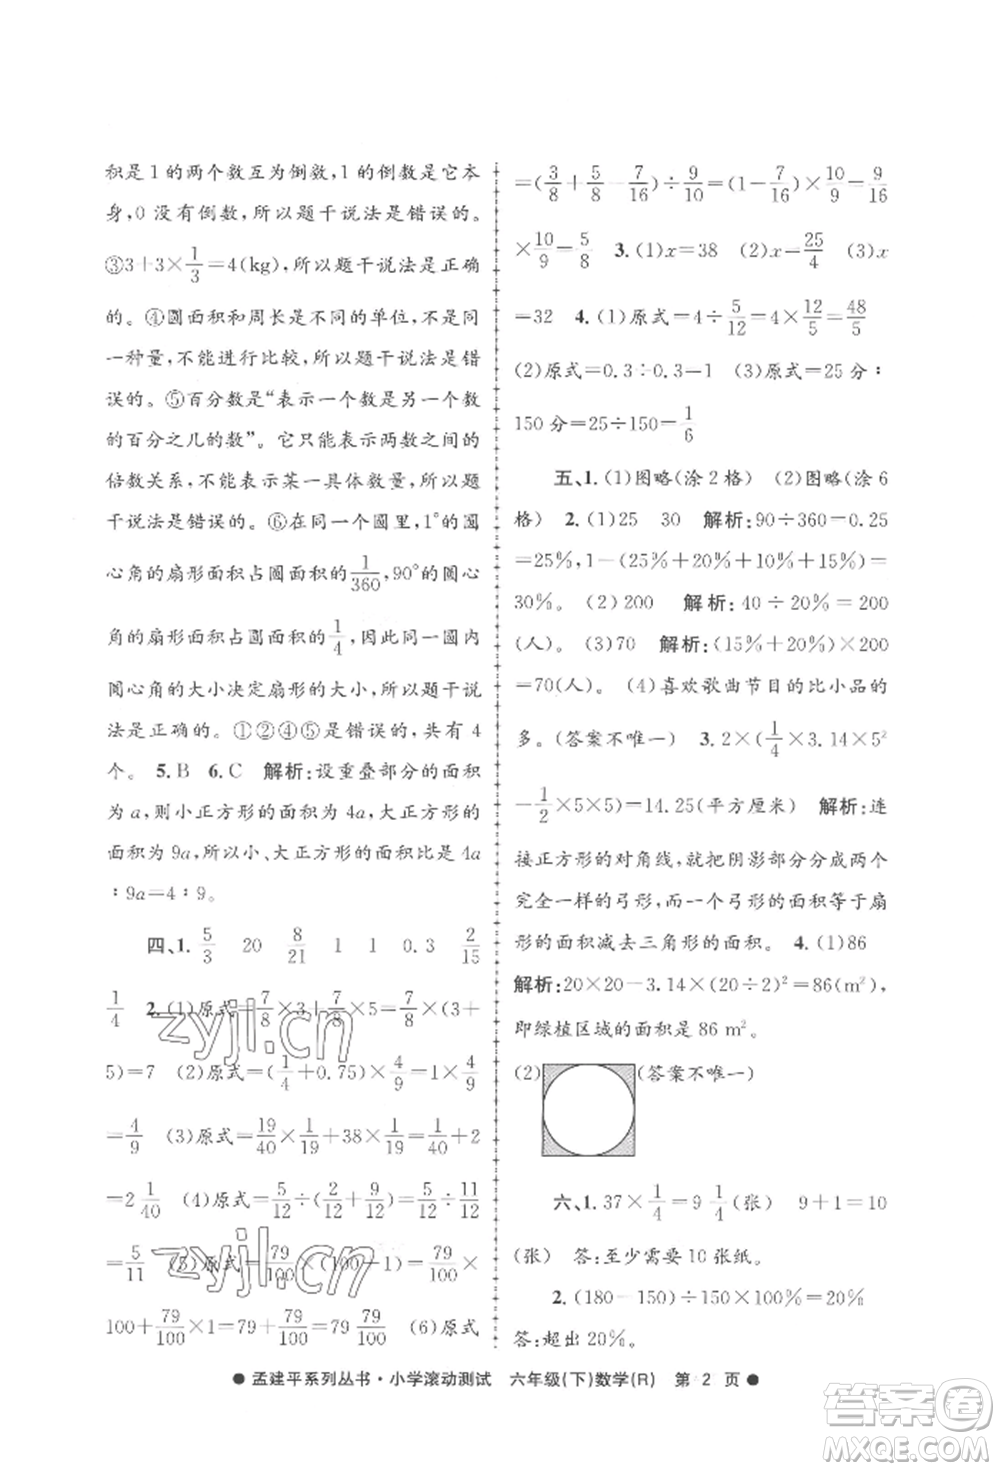 积是1的两个数互为倒数,1的倒数是它本
身,0没有倒数,所以题干说法是错误的。
③3+3×1/3=4(kg),所以题干说法是正确
的。④圆面积和周长是不同的单位,不是同
一种量,不能进行比较,所以题干说法是错
误的。⑤百分数是“表示一个数是另一个数
的百分之几的数”。它只能表示两数之间的
倍数关系,不能表示某一具体数量,所以题
干说法是错误的。⑥在同一个圆里,1°的圆
心角的扇形面积占圆面积的1/360,90°的圆心
角的扇形面积占圆面积的1/4,因此同一圆内
圆心角的大小决定扇形的大小,所以题干说
法是正确的。①②④⑤是错误的,共有4
个。 5.B 6.C 解析:设重叠部分的面积
为a,则小正方形的面积为4a,大正方形的
面积为9a,所以小、大正方形的面积比是4a
∶9a=4∶9。
四、1. 5/3 20 8/21 1 1 0.3 2/15
1/4 2.(1)原式=7/8×3+7/8×5=7/8×(3+
5)=7 (2)原式=(1/4+0.75)×4/9=1×4/9
=4/9 (3)原式=19/40×1/19+38×1/19=1/40+2
=2 1/40 (4)原式=5/12÷(2/12+9/12)=5/12÷11/12
=5/11 (5)原式=79/100×(100+1)=79/100×
100+79/100×1=79+79/100=79 79/100 (6)原式
=(3/8+5/8-7/16)÷9/10=(1-7/16)×10/9=9/16
×10/9=5/8 3.(1)x=38 (2)x=25/4 (3)x
=32 4.(1)原式=4÷5/12=4×12/5=48/5
(2)原式=0.3÷0.3=1 (3)原式=25分∶
150分=25÷150=1/6
五、1.(1)图略(涂2格) (2)图略(涂6
格) 2.(1)25 30 解析:90÷360=0.25
=25%,1-(25%+20%+10%+15%)=
30%。 (2)200 解析:40÷20%=200
(人)。 (3)70 解析:(15%+20%)×200
=70(人)。 (4)喜欢歌曲节目的比小品的
多。(答案不唯一) 3.2×(1/4×3.14×5²
-1/2×5×5)=14.25(平方厘米) 解析:连
接正方形的对角线,就把阴影部分分成两个
完全一样的弓形,而一个弓形的面积等于扇
形的面积减去三角形的面积。 4.(1)86
解析:20×20-3.14×(20÷2)²=86(m²),
即绿植区域的面积是86 m²。
(2) (答案不唯一)
六、1.37×1/4=9 1/4(张) 9+1=10
(张) 答:至少需要10张纸。
2.(180-150)÷150×100%=20%
答:超出20%。
●孟建平系列丛书·小学滚动测试 六年级(下)数学(R) 第2页●
zyjl.cn
zyjl.cn
答案圈
MXQE.COM